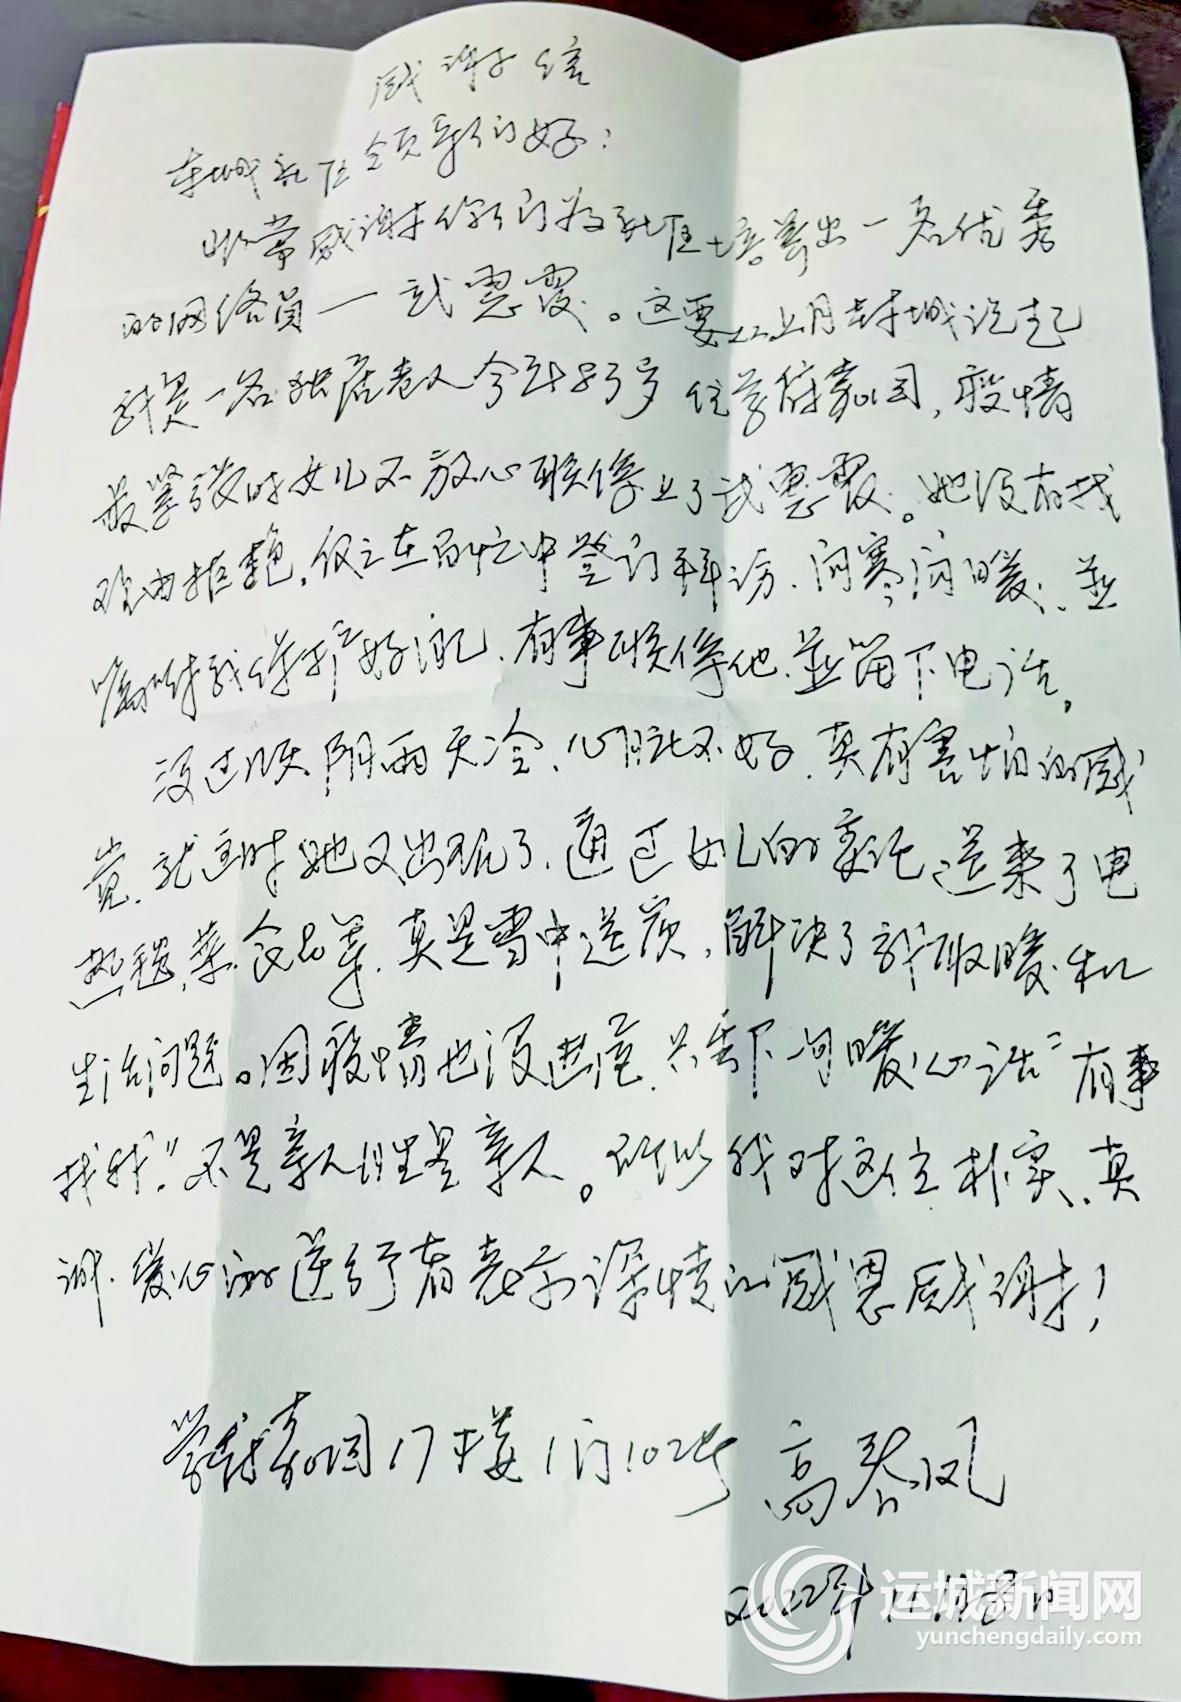 感谢信
东城社区全员亲们好：
非常感谢你们为社区培养出一名优秀
的网络员一武惠霞。这要从上月封城说起
我是一名独居老人今年83岁 住学府嘉园，疫情
最紧张时女儿不放心联系上了武惠霞。她没有找
理由拒绝，仅在百忙中登门拜访、问寒问暖、并
嘱咐我保护好自己、有事联系她、并留下电话。
没过几天 阴雨天冷、心脏不好、真有害怕的感
觉、就这时她又出现了、通过女儿的委托 送来了电
热毯，菜、食品等、真是雪中送炭，解决了我取暖和
生活问题。因疫情也没进屋、只留下一句暖心话“有事
找我”不是亲人胜是亲人。所以我对这位朴实、真
诚、爱心的逆行者表示深情的感恩感谢！
学府嘉园17栋楼1门102号 高春凤
2022年
运城新闻网
yunchengdaily.com